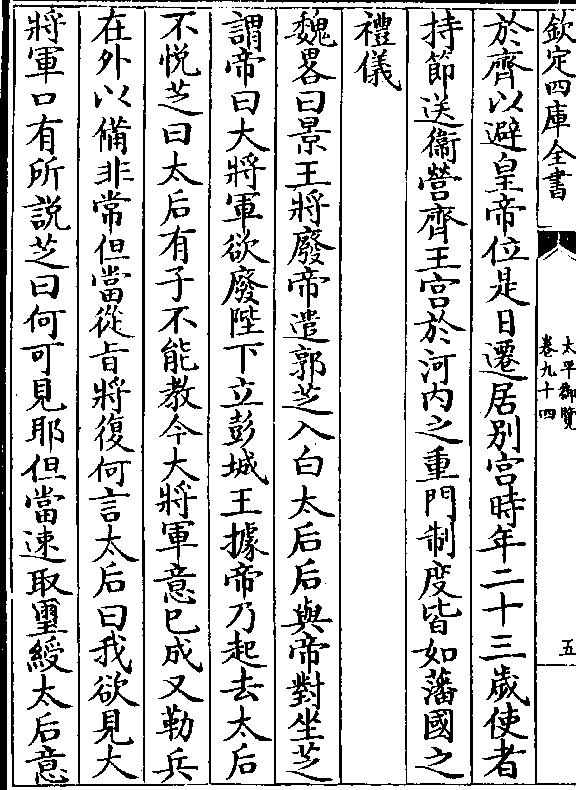 欽定四庫全書
太平御覽
卷九十四
五
於齊以避皇帝位是日遷居别宫時年二十三歲使者
持節送衞營齊王宫於河内之重門制度皆如藩國之
禮儀
魏畧曰景王將廢帝遣郭芝入白太后后與帝對坐芝
謂帝曰大將軍欲廢陛下立彭城王據帝乃起去太后
不悦芝曰太后有子不能教今大將軍意已成又勒兵
在外以備非常但當從㫖將復何言太后曰我欲見大
將軍口有所說芝曰何可見耶但當速取璽綬太后意